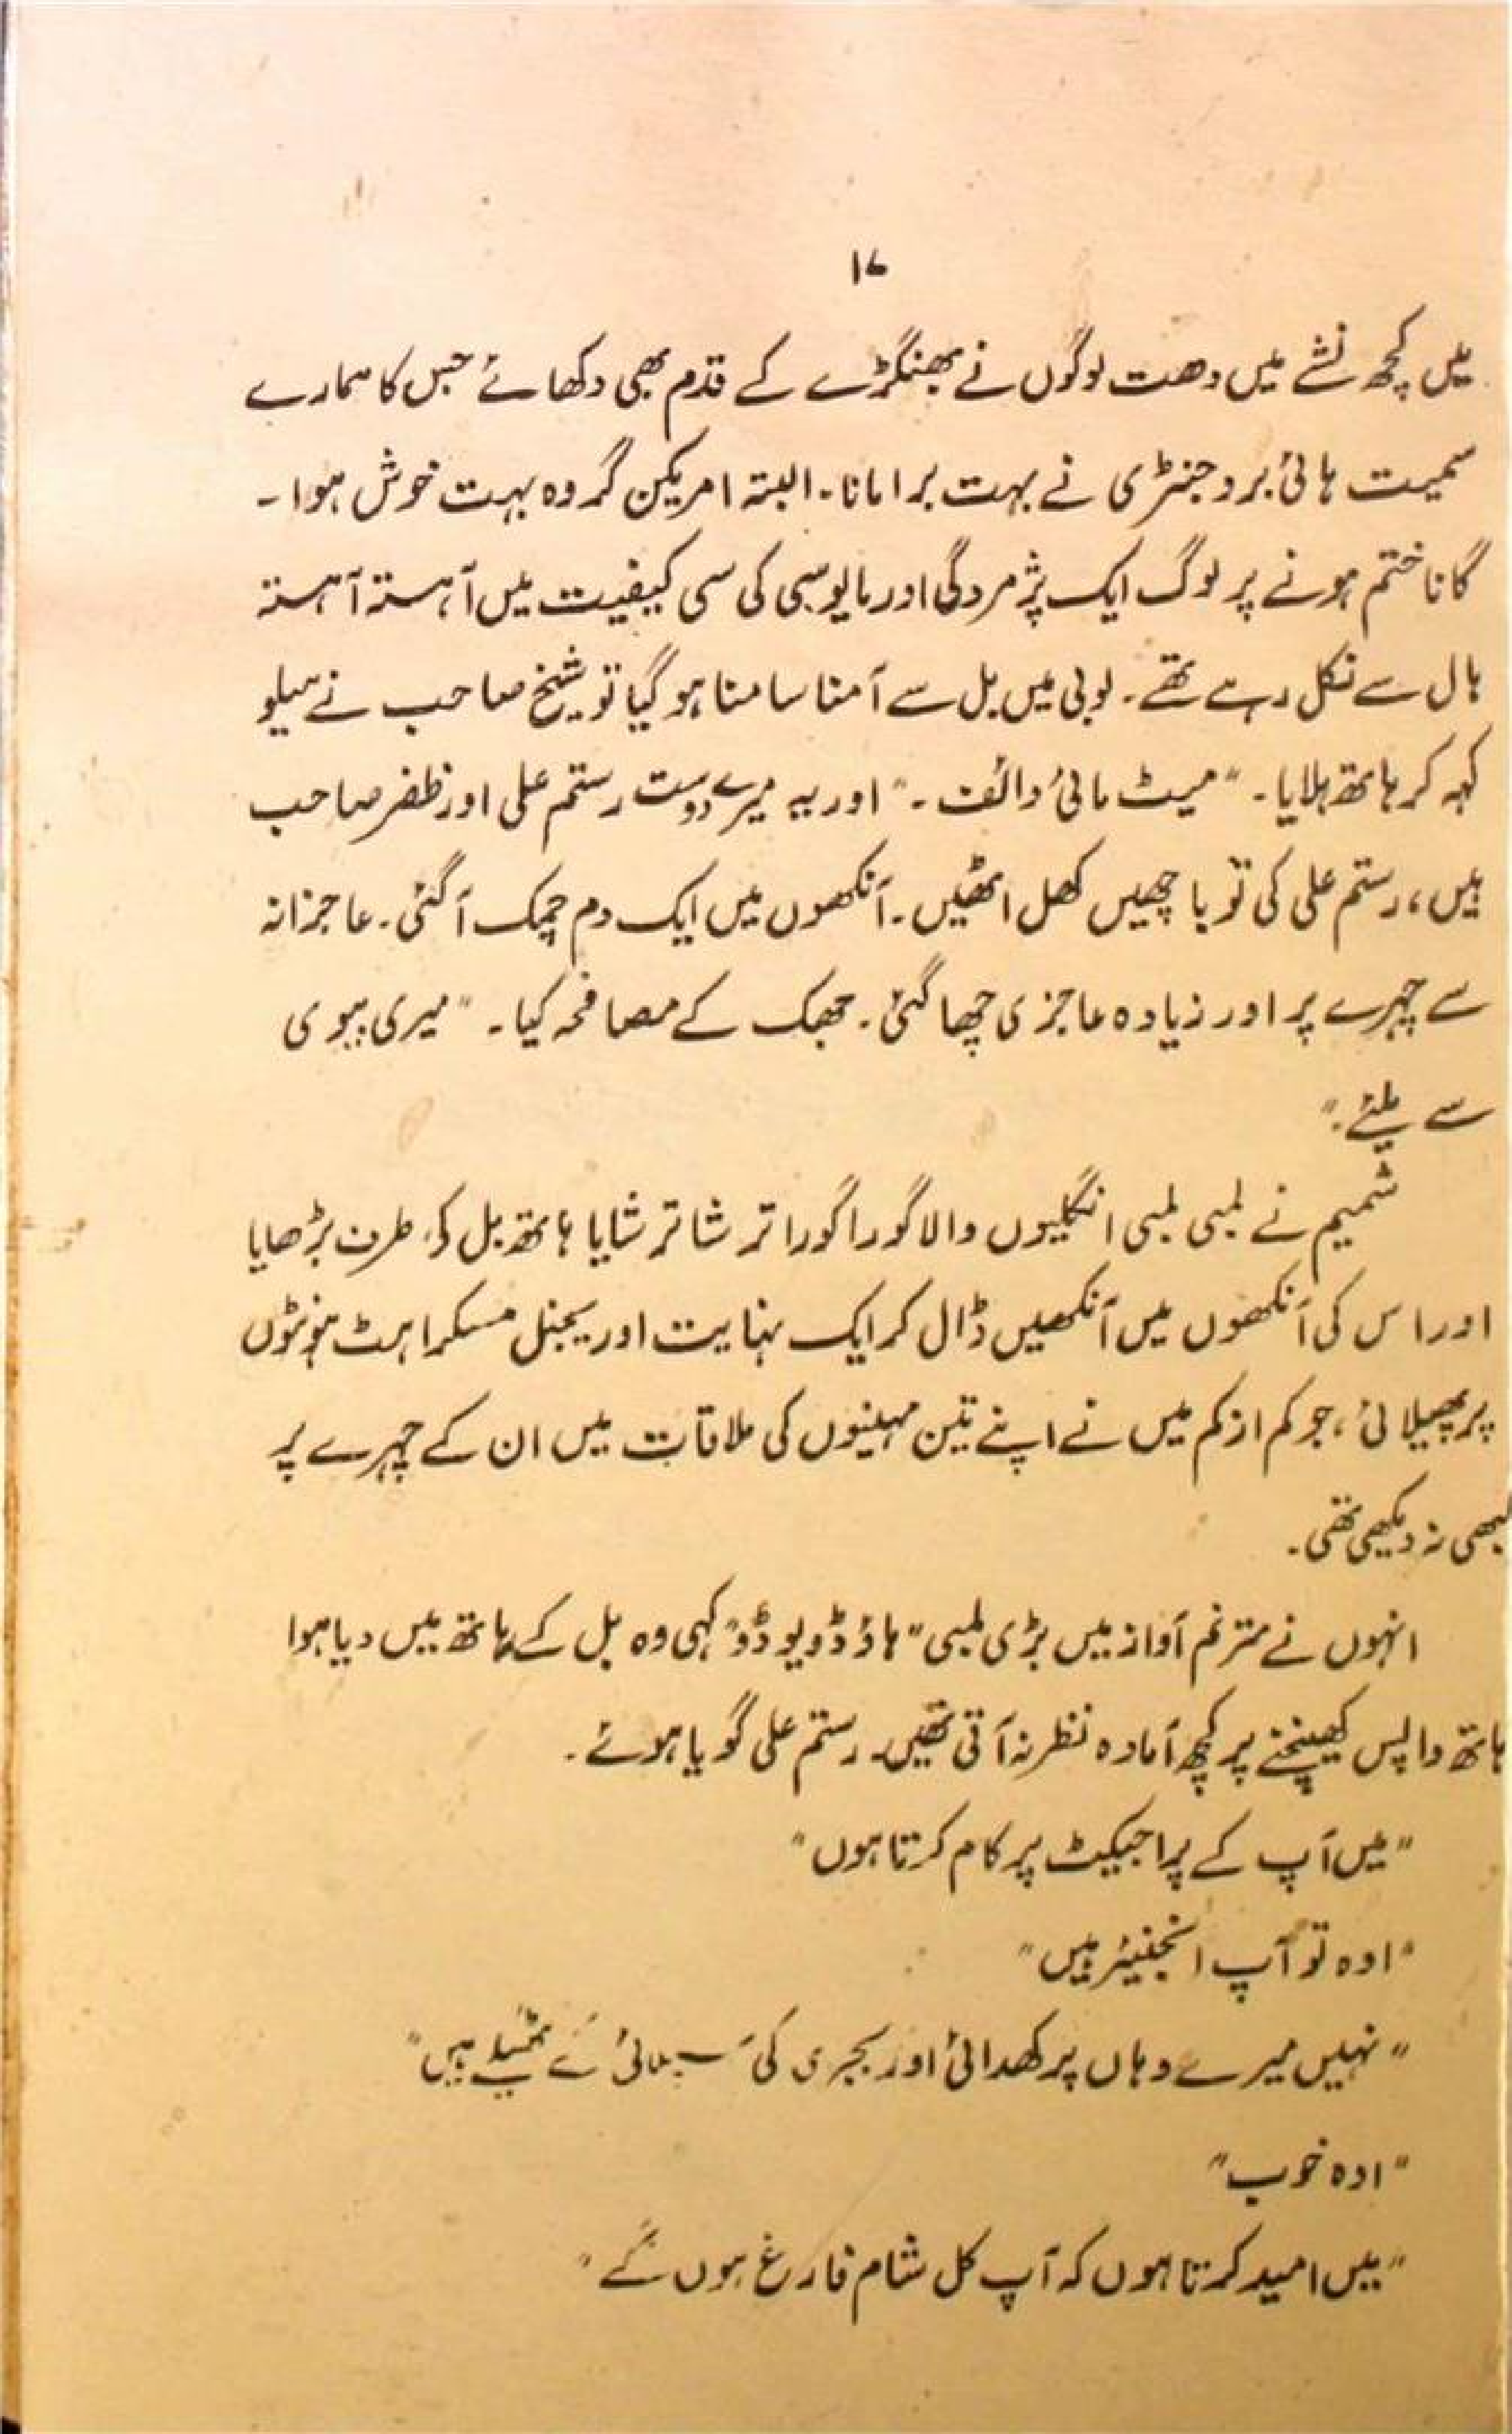 ۱۷
میں کچھ نشے میں دھت لوگوں نے بھنگڑے کے قدم بھی دکھائے جس کا ہمارے
سمیت ہائی برو جنٹری نے بہت برا مانا۔ البتہ امریکن گروہ بہت خوش ہوا۔
گانا ختم ہونے پر لوگ ایک پژمردگی اور مایوسی کی سی کیفیت میں آہستہ آہستہ
ہال سے نکل رہے تھے۔ لوبی میں بل سے آمنا سامنا ہو گیا تو شیخ صاحب نے ہیلو
کہہ کر ہاتھ ہلایا۔ "میٹ مائی وائف۔" اور یہ میرے دوست رستم علی اور ظفر صاحب
ہیں، رستم علی کی تو باچھیں کھل اٹھیں۔ آنکھوں میں ایک دم چمک آ گئی۔ عاجزانہ
سے چہرے پر اور زیادہ عاجزی چھا گئی۔ جھک کے مصافحہ کیا۔ "میری بیوی
سے ملیئے۔"
شمیم نے لمبی لمبی انگلیوں والا گورا گورا ترشا ترشایا ہاتھ بل کی طرف بڑھایا
اور اس کی آنکھوں میں آنکھیں ڈال کر ایک نہایت اوریجنل مسکراہٹ ہونٹوں
پر پھیلائی، جو کم از کم میں نے اپنے تین مہینوں کی ملاقات میں ان کے چہرے پر
کبھی نہ دیکھی تھی۔
انہوں نے مترنم آواز میں بڑی لمبی "ہاؤ ڈو یو ڈو" کہی وہ بل کے ہاتھ میں دیا ہوا
ہاتھ واپس کھینچنے پر کچھ آمادہ نظر نہ آتی تھیں۔ رستم علی گویا ہوئے۔
"میں آپ کے پراجیکٹ پر کام کرتا ہوں"
"اوہ تو آپ انجنیئر ہیں"
"نہیں میرے وہاں پر کھدائی اور بجری کی سپلائی کے ٹھیکے ہیں"
"اوہ خوب"
"میں امید کرتا ہوں کہ آپ کل شام فارغ ہوں گے"